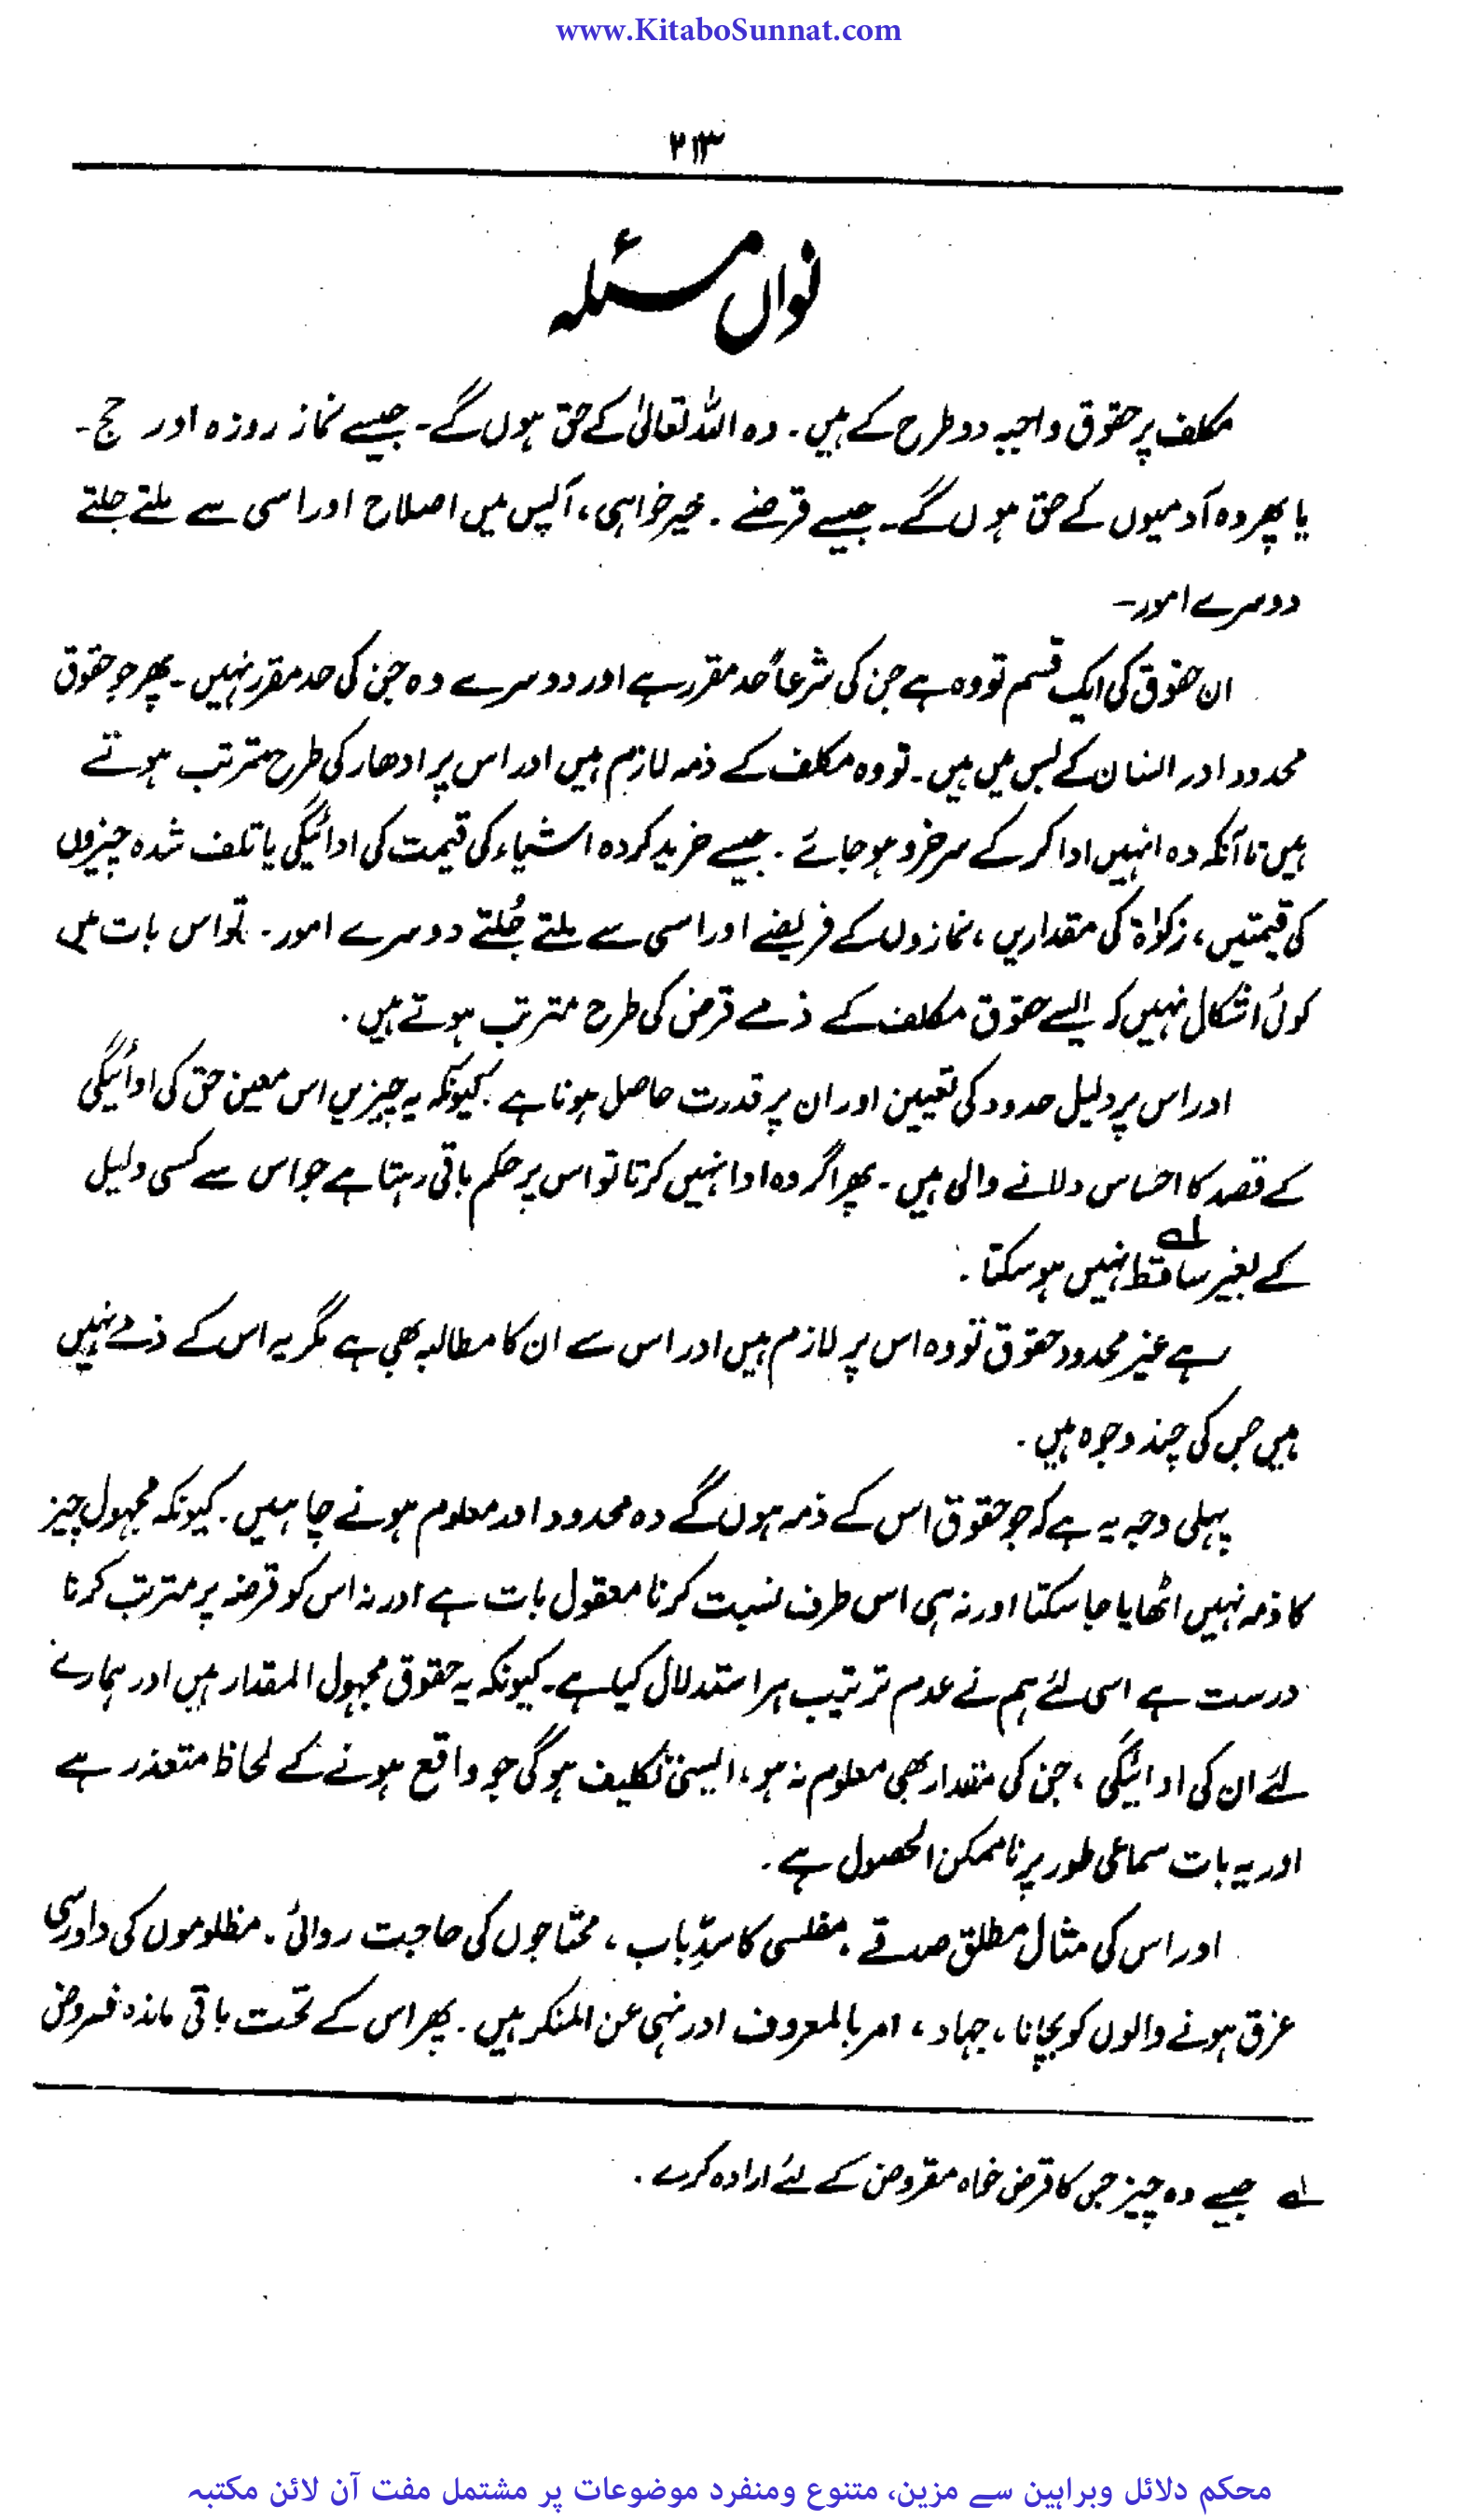 www.KitaboSunnat.com
۲۱۳
نواں مسئلہ
مکلف پر حقوق واجبہ دو طرح کے ہیں۔ وہ اللہ تعالیٰ کے حق ہوں گے۔ جیسے نماز روزہ اور حج۔
یا پھر وہ آدمیوں کے حق ہوں گے۔ جیسے قرضے۔ خیر خواہی، آپس میں اصلاح اور اسی سے ملتے جلتے
دوسرے امور۔
ان حقوق کی ایک قسم تو وہ ہے جن کی شرعاً حد مقرر ہے اور دوسرے وہ جن کی حد مقرر نہیں۔ پھر جو حقوق
محدود اور انسان کے بس میں ہیں۔ تو وہ مکلف کے ذمہ لازم ہیں اور اس پر ادھار کی طرح مترتب ہوتے
ہیں تا آنکہ وہ انہیں ادا کر کے سرخرو ہو جائے۔ جیسے خرید کردہ اشیاء کی قیمت کی ادائیگی یا تلف شدہ چیزوں
کی قیمتیں، زکوٰۃ کی مقداریں، نمازوں کے فریضے اور اسی سے ملتے جُلتے دوسرے امور۔ تو اس بات میں
کوئی اشکال نہیں کہ ایسے حقوق مکلف کے ذمے قرض کی طرح مترتب ہوتے ہیں۔
اور اس پر دلیل حدود کی تعیین اور ان پر قدرت حاصل ہونا ہے۔ کیونکہ یہ چیزیں اس معین حق کی ادائیگی
کے قصد کا احساس دلانے والی ہیں۔ پھر اگر وہ ادا نہیں کرتا تو اس پر حکم باقی رہتا ہے جو اس سے کسی دلیل
کے بغیر ساقط نہیں ہو سکتا۔ ؎۱
رہے غیر محدود حقوق تو وہ اس پر لازم ہیں اور اس سے ان کا مطالبہ بھی ہے مگر یہ اس کے ذمے نہیں
ہیں جس کی چند وجوہ ہیں۔
پہلی وجہ یہ ہے کہ جو حقوق اس کے ذمہ ہوں گے وہ محدود اور معلوم ہونے چاہئیں۔ کیونکہ مجہول چیز
کا ذمہ نہیں اٹھایا جا سکتا اور نہ ہی اس طرف نسبت کرنا معقول بات ہے اور نہ اس کو قرضہ پر مترتب کرنا
درست ہے اسی لئے ہم نے عدم ترتیب پر استدلال کیا ہے۔ کیونکہ یہ حقوق مجہول المقدار ہیں اور ہمارے
لئے ان کی ادائیگی، جن کی مقدار بھی معلوم نہ ہو، ایسی تکلیف ہوگی جو واقع ہونے کے لحاظ متعذر ہے
اور یہ بات سماعی طور پر ناممکن الحصول ہے۔
اور اس کی مثال مطلق صدقے۔ مفلسی کا سدِّباب، محتاجوں کی حاجت روائی۔ مظلوموں کی دادرسی
غرق ہونے والوں کو بچانا، جہاد، امر بالمعروف اور نہی عن المنکر ہیں۔ پھر اس کے تحت باقی ماندہ فروض
؎۱ جیسے وہ چیز جس کا قرض خواہ مقروض کے لئے ارادہ کرے۔
محکم دلائل وبراہین سے مزین، متنوع ومنفرد موضوعات پر مشتمل مفت آن لائن مکتبہ